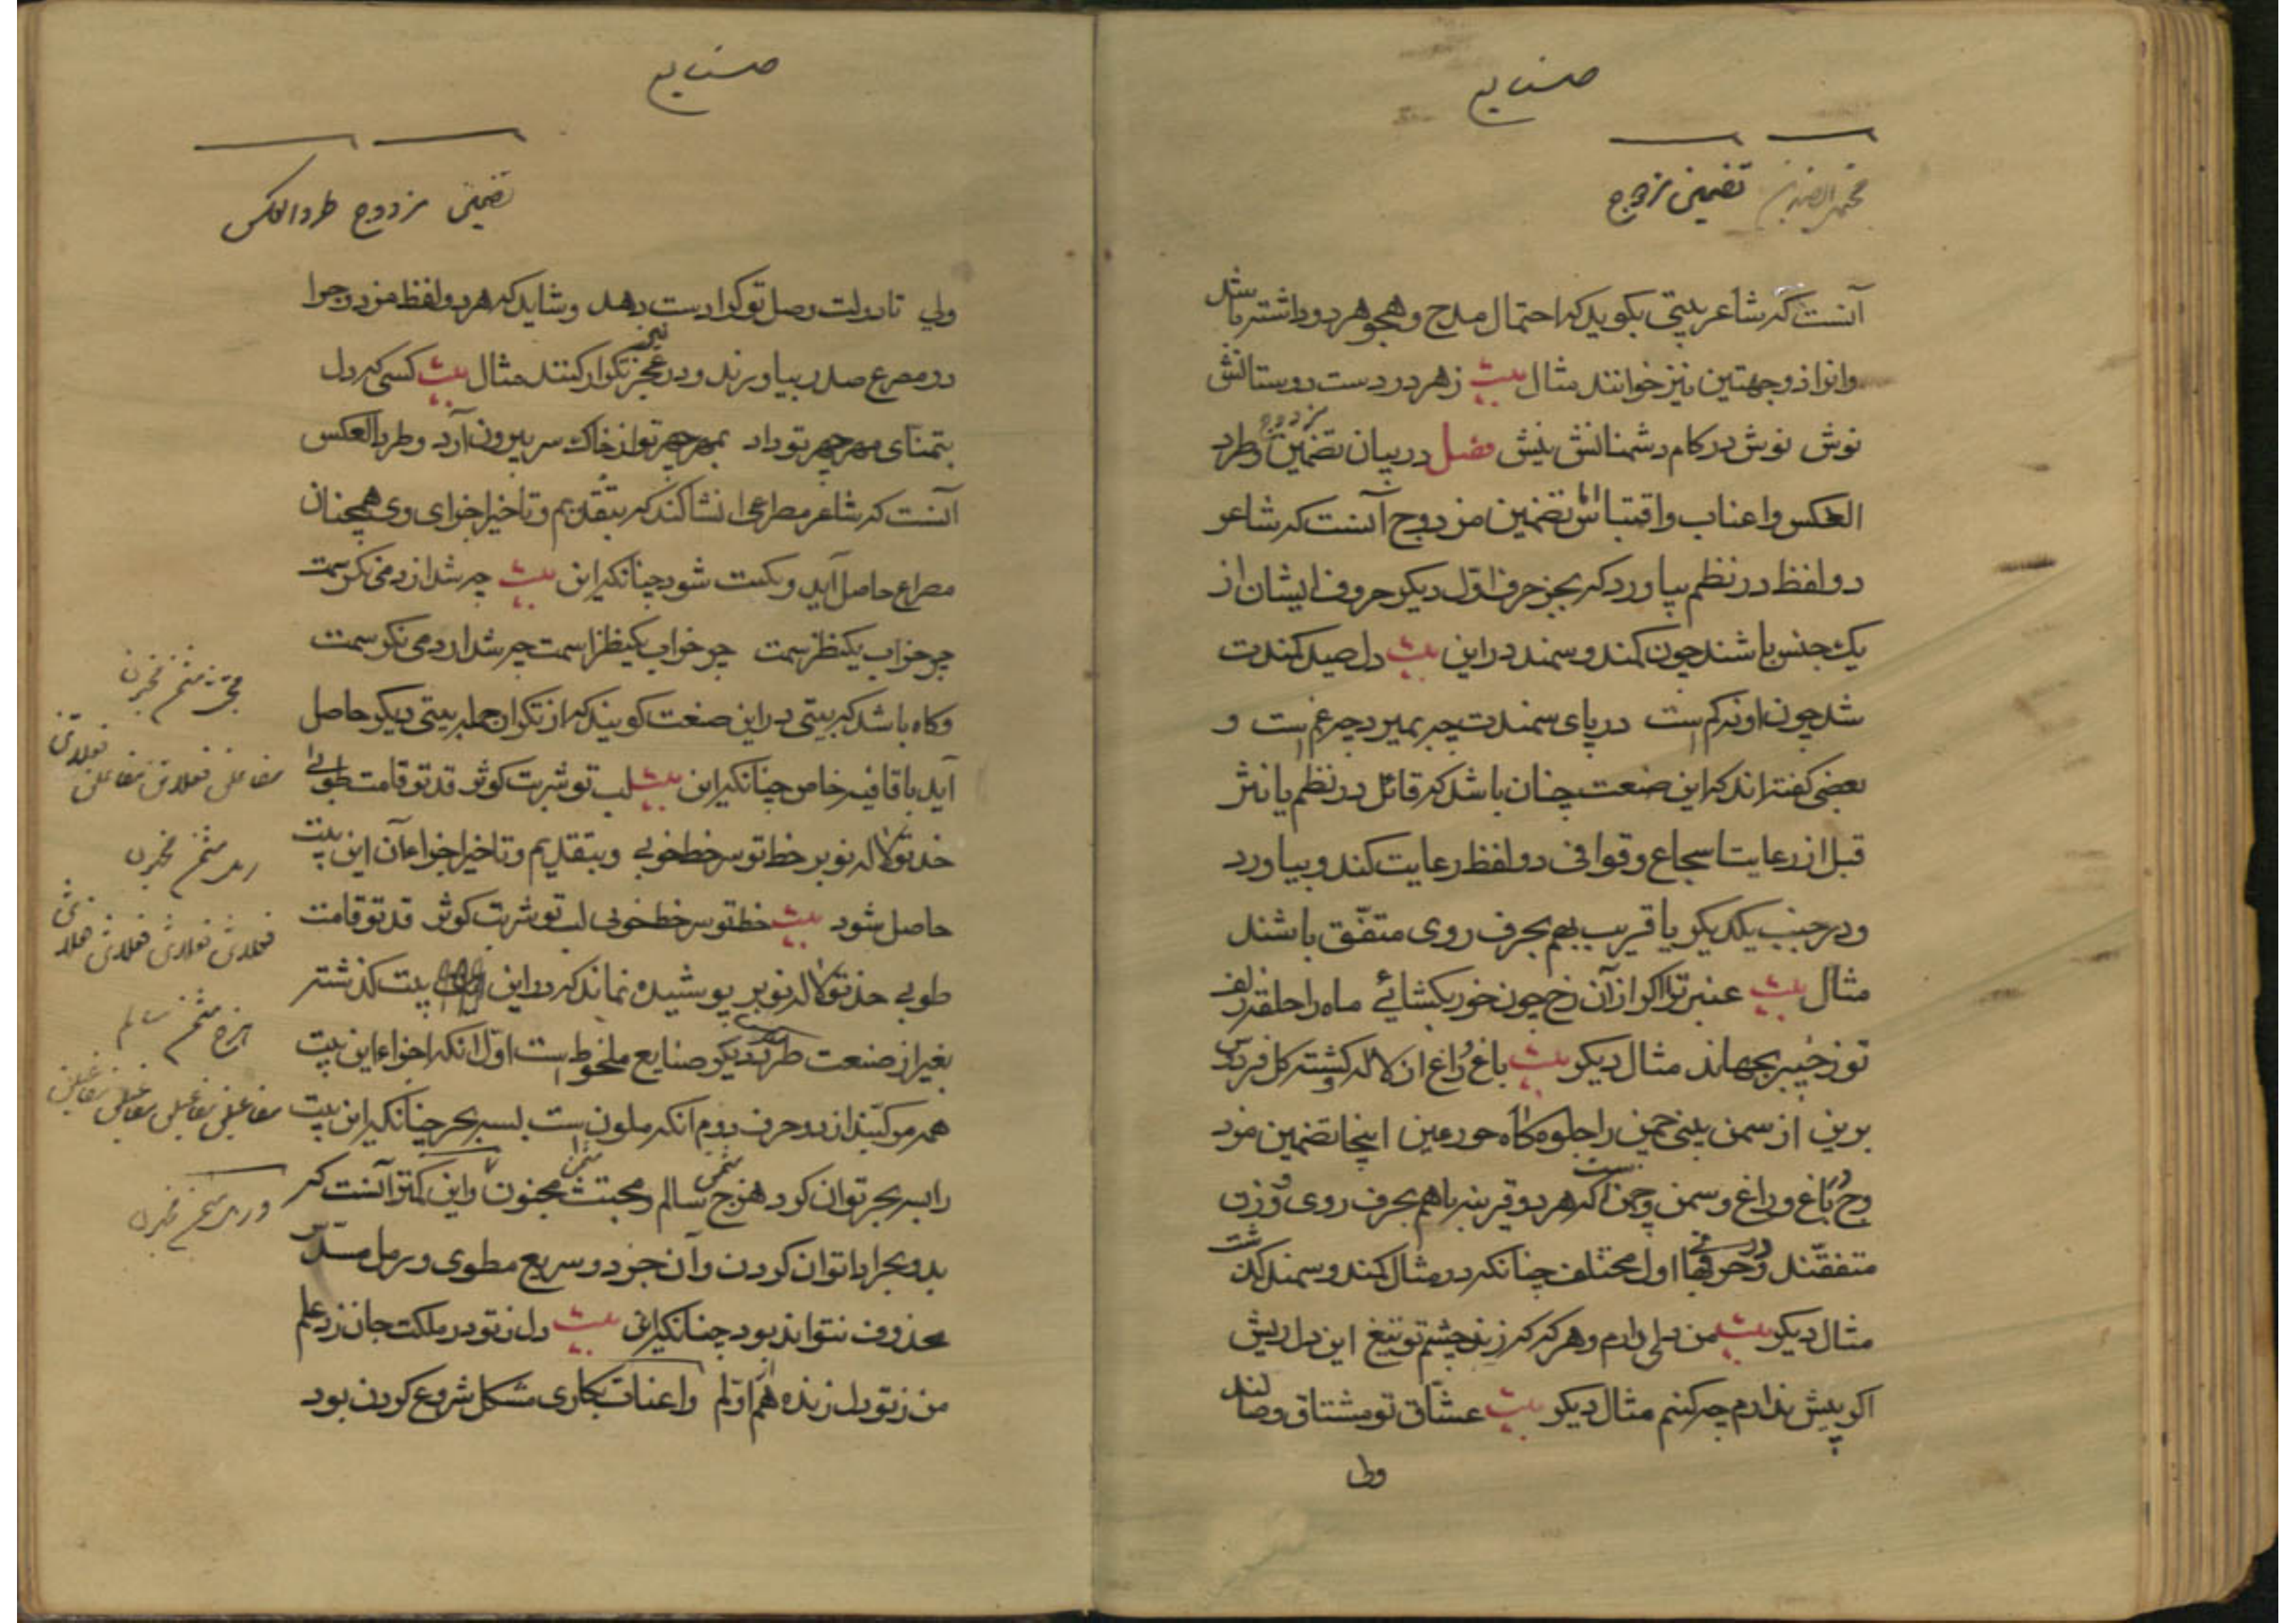 صنایع
محتمل الضدین تضمین مزدوج
آنست که شاعر بیتی بکوید که احتمال مدح و هجو هر دو داشته باشد
وانرا ذو جهتین نیز خوانند مثال بیت زهر در دست دوستانش
نوش نوش در کام دشمنانش نیش فصل در بیان تضمین مزدوج وطرد
العکس واعناب واقتباس اما تضمین مزدوج آنست که شاعر
دو لفظ در نظم بیاورد که بجز حرف اول دیکر حروف ایشان از
یک جنس باشند چون کمند و سمند در این بیت دل صید کمندت
شد چون او نه کم است در پای سمندت چه بمیرد چه غم است و
بعضی کفته اند که این صنعت چنان باشد که قائل در نظم یا نثر
قبل از رعایت اسجاع وقوافی دو لفظ رعایت کند و بیاورد
ودر جنب یکدیکر یا قریب بهم بحرف روی متفق باشند
مثال بیت عنبر ترا کر از آن رخ چون خور بکشائے ماه را حلقه زلف
تو زنجیر بجهاند مثال دیکر بیت باغ و راغ از لاله کشته کل فردوس
برین از سمن بینی چمن را جلوه کاه حور عین اینجا تضمین مزد
وج باغ و راغ و سمن و چمن است که هر دو قرینه باهم بحرف روی و وزن
متفقند ودر حرفهاء اول مختلف چنانکه در مثال کمند و سمند کذشت
مثال دیکر بیت من دلی دارم وهر که که زند چشم تو تیغ این دل ریش
اکر پیش ندارم چه کنم مثال دیکر بیت عشاق تو مشتاق وصالند
ولی
صنایع
تضمین مزدوج طرد العکس
ولي تا دولت وصل تو کرا دست دهد وشاید که هر دو لفظ مزدوج را
در مصرع صدر بیاورند ودر عجز نیز تکرار کنند مثال بیت کسی که دل
بتمنای مهر چهر تو داد بمهر چهر تو از خاک سر بیرون آرد وطرد العکس
آنست که شاعر مصراعی انشا کند که بتقدیم وتاخیر اجزای وی همچنان
مصراع حاصل آید و بیت شود چنانکه این بیت چه شد ار دمی نکرسمت
چو خواب یکنظر سمت چو خواب یکنظر سمت چه شد ار دمی نکرسمت
وکاه باشد که بیتی در این صنعت کویند که از تکرار جمله بیتی دیکر حاصل
آید با قافیه خاص چنانکه این بیت لب تو شربت کوثر قد تو قامت طوبی
خد تو لاله نوبر خط تو سر خط خوبی وبتقدیم وتاخیر اجزاء آن این بیت
حاصل شود بیت خط تو سر خط خوبی لب تو شربت کوثر قد تو قامت
طوبی خد تو لاله نوبر پوشیده نماند که در این بیت کذشته
بغیر از صنعت طرد دیکر صنایع ملحوظ است اول انکه اجزاء این بیت
همه مرکبند از دو حرف دوم انکه ملون است بسه بحر چنانکه این بیت
را بسه بحر توان کرد هزج مثمن سالم ومجتث مثمن مخبون واین کمتر آنست که
بدو بحر ادا توان کردن وآن جز در سریع مطوی ورمل مسدس
محذوف نتواند بود چنانکه این بیت دل ز تو در ملکت جان زد علم
من ز تو دل زنده هم از اولم واعنات بکاری مشکل شروع کردن بود
مجتث مثمن مخبون
مفاعلن فعلاتن مفاعلن فعلاتن
رمل مثمن مخبون
فعلاتن فعلاتن فعلاتن فعلاتن
هزج مثمن سالم
مفاعیلن مفاعیلن مفاعیلن مفاعیلن
ورمل مثمن مخبون